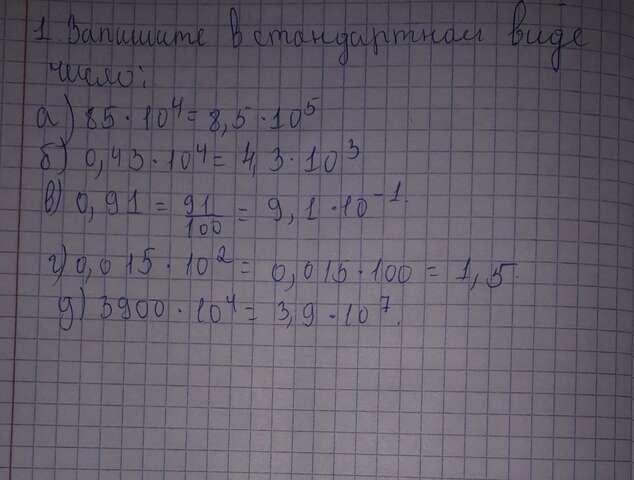 1 Запишите в стандартном виде
число:
а) 85 · 10⁴ = 8,5 · 10⁵
б) 0,43 · 10⁴ = 4,3 · 10³
в) 0,91 = 91/100 = 9,1 · 10⁻¹.
г) 0,015 · 10² = 0,015 · 100 = 1,5.
д) 3900 · 10⁴ = 3,9 · 10⁷.